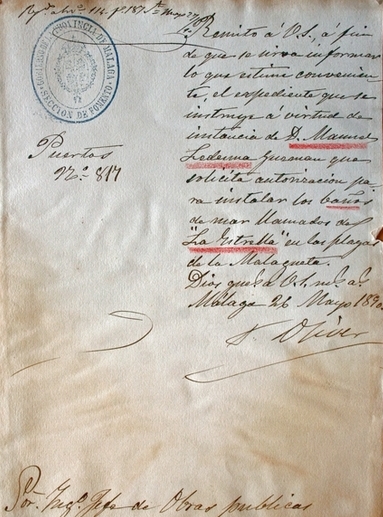 GOBIERNO DE LA PROVINCIA DE MALAGA
SECCION DE FOMENTO
Puertos
Nº. 817
Remito á V.S. á fin
de que se sirva informar
lo que estime convenien
te, el expediente que se
instruye á virtud de
instancia de D. Manuel
Ledesma Guzman que
solicita autorizacion pa
ra instalar los baños
de mar llamados de
"La Estrella" en las playas
de la Malagueta.
Dios gue á V.S. ms. as.
Málaga 26 Mayo 1890
Oliver
Sor. Ingo. Jefe de Obras publicas